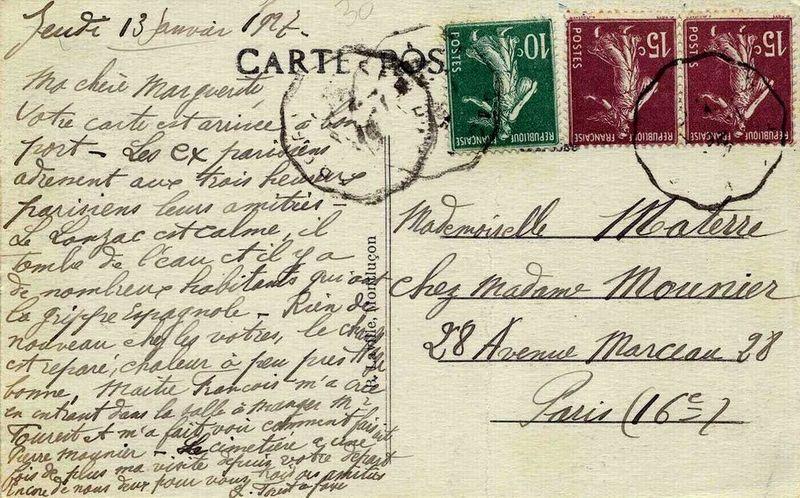 Jeudi 13 Janvier 192
CARTE POS
Ma chère Marguerite
Votre carte est arrivée à bon
port - Les ex parisiens
adressent aux trois heureux
parisiens leurs amitiés -
Le Lonzac est calme, il
tombe de l'eau et il y a
de nombreux habitants qui ont
la grippe Espagnole - Rien de
nouveau chez les votres, le
est reparé, chaleur à peu près
bonne, Maître François m'a
en entrant dans la salle à manger Mr
m'a fait voir comment fait
Pierre Mognier - Le cimetière a une
fois de plus ma visite depuis votre départ
Encore de nous deux pour vous trois amitiés
P. Laville, Montluçon
POSTES 10c RÉPUBLIQUE FRANÇAISE
POSTES 15c RÉPUBLIQUE FRANÇAISE
15c RÉPUBLIQUE FRANÇAISE
Mademoiselle Materre
chez Madame Mounier
28 Avenue Marceau 28
Paris (16e)